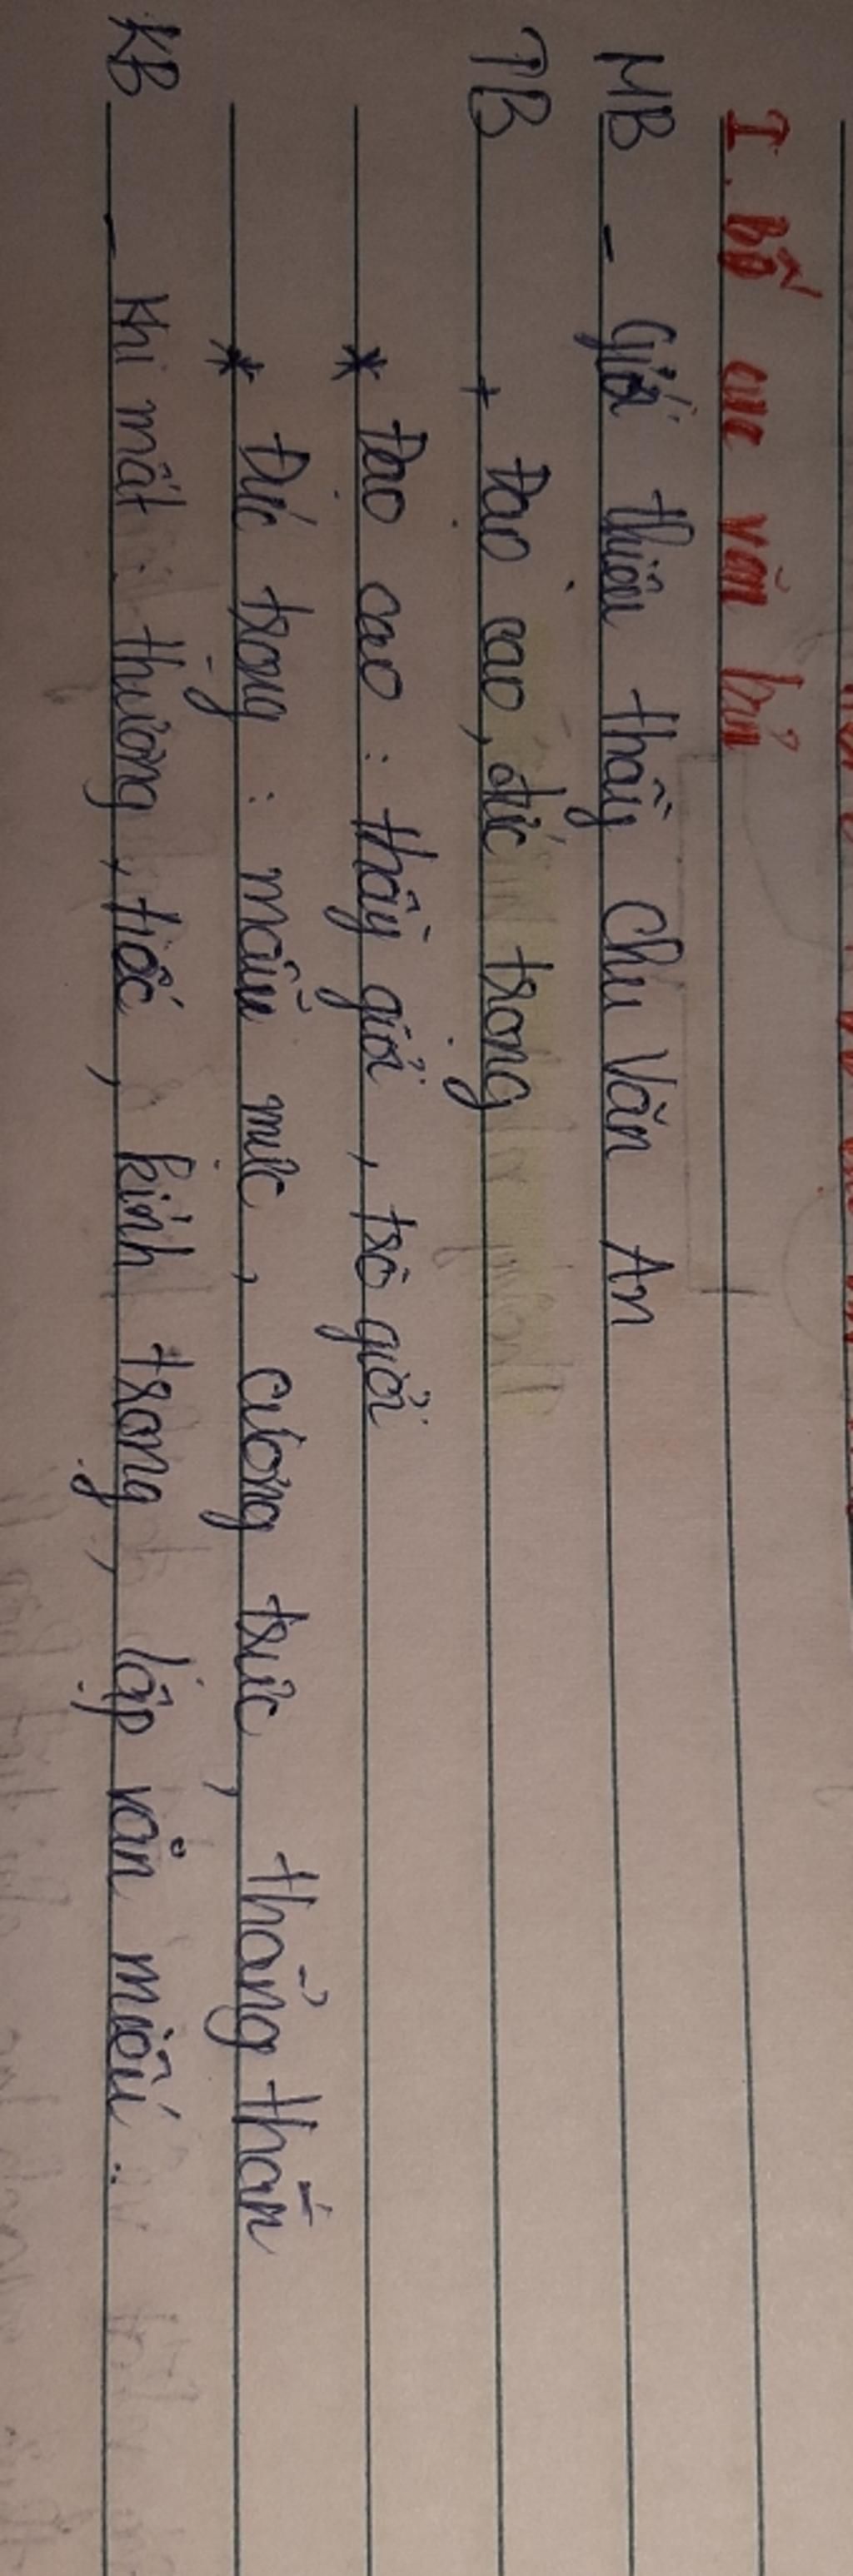 I. Bố cục văn bản
MB - Giới thiệu thầy Chu Văn An
TB + Đạo cao, đức trọng
* Đạo cao : thầy giỏi, trò giỏi
* Đức trọng : mẫu mực, cương trực, thẳng thắn
KB - Khi mất: thương, tiếc, kính trọng, lập văn miếu.